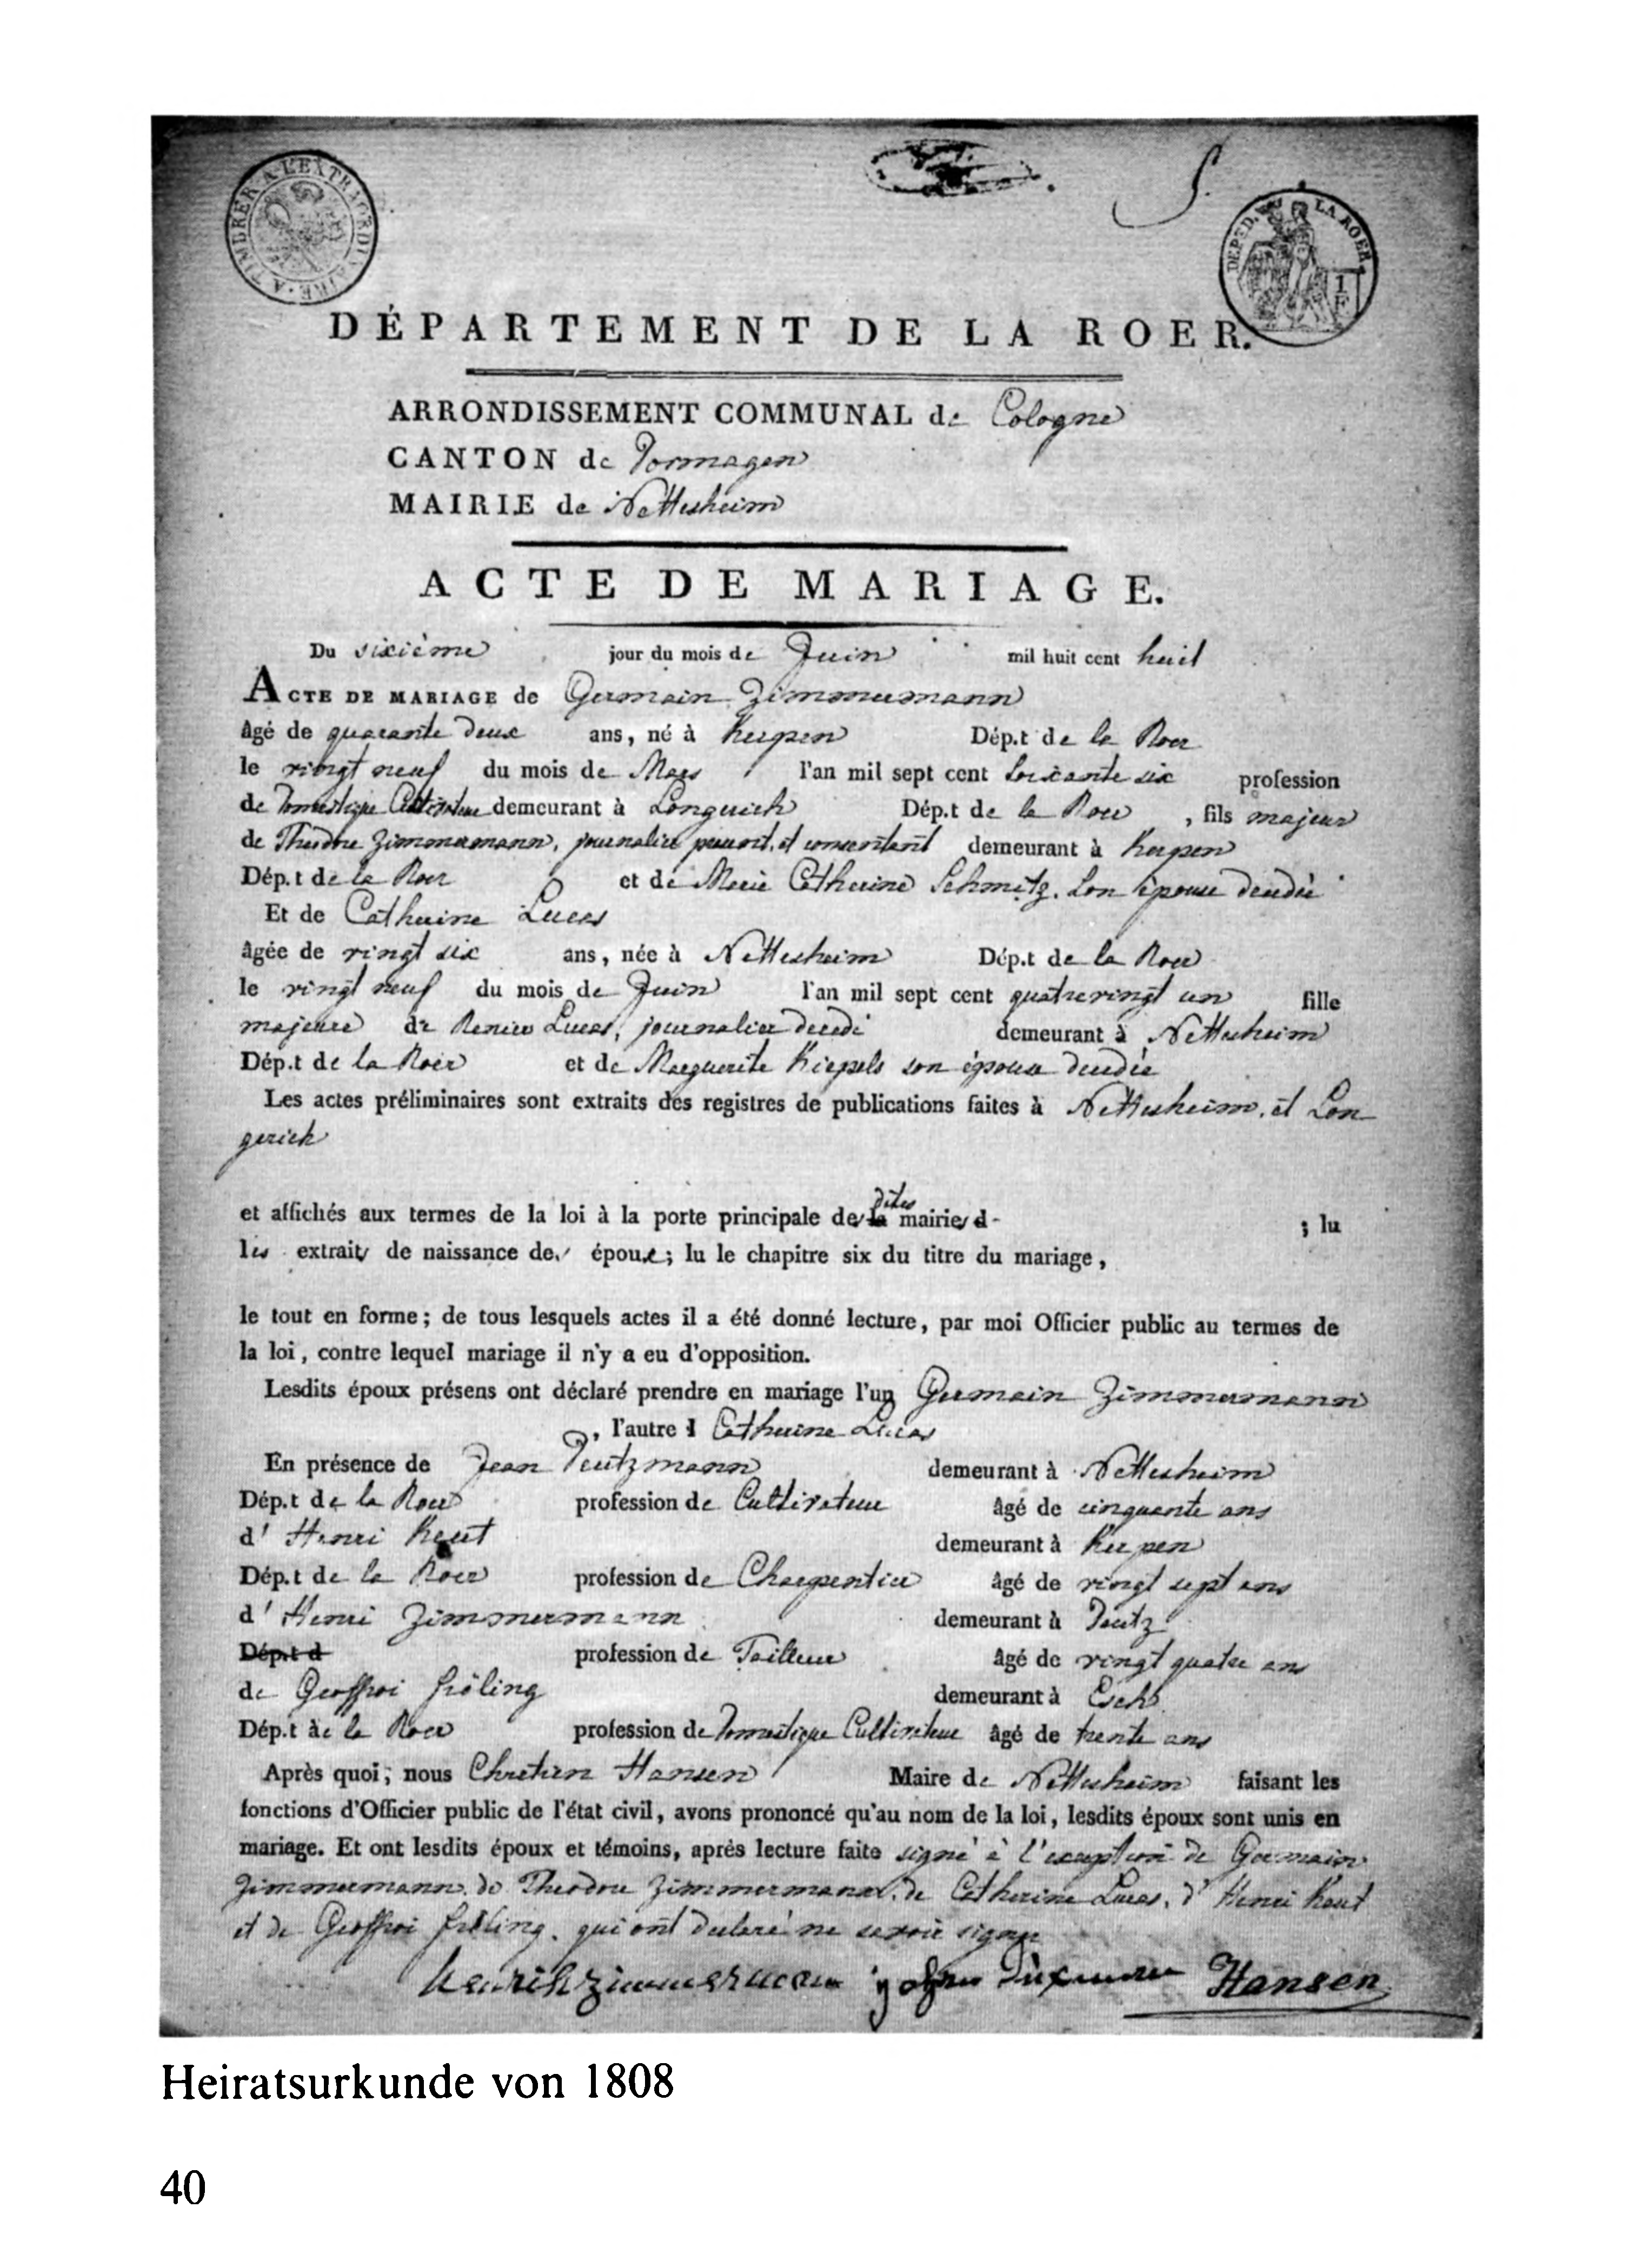 A TIMBRER A L'EXTRAORDINAIRE
5.
DEP. DE LA ROER.
1
F
DÉPARTEMENT DE LA ROER.
ARRONDISSEMENT COMMUNAL de Cologne
CANTON de Dormagen
MAIRIE de Nettesheim
ACTE DE MARIAGE.
Du sixième jour du mois de Juin mil huit cent huit
ACTE DE MARIAGE de Germain Zimmermann
âgé de quarante deux ans, né à Kerpen Dép.t de la Roer
le vingt neuf du mois de Mars l'an mil sept cent soixante six profession
de Domestique Cultivateur demeurant à Longerich Dép.t de la Roer, fils majeur
de Théodore Zimmermann, journalier présent, et consentant demeurant à Kerpen
Dép.t de la Roer et de Marie Catherine Schmitz. son épouse décédée
Et de Catherine Lucas
âgée de vingt six ans, née à Nettesheim Dép.t de la Roer
le vingt neuf du mois de Juin l'an mil sept cent quatrevingt un fille
majeure de Renier Lucas, journalier decedé demeurant à Nettesheim
Dép.t de la Roer et de Marguerite Kiepels son épouse décédée
Les actes préliminaires sont extraits des registres de publications faites à Nettesheim, et Lon
gerich
et affichés aux termes de la loi à la porte principale des dites mairies d- ; lu
les extraits de naissance des époux; lu le chapitre six du titre du mariage,
le tout en forme; de tous lesquels actes il a été donné lecture, par moi Officier public au termes de
la loi, contre lequel mariage il n'y a eu d'opposition.
Lesdits époux présens ont déclaré prendre en mariage l'un Germain Zimmermann
, l'autre Catherine Lucas
En présence de Jean Deutzmann demeurant à Nettesheim
Dép.t de la Roer profession de Cultivateur âgé de cinquante ans
d' Henri Kaut demeurant à Kerpen
Dép.t de la Roer profession de Charpentier âgé de vingt sept ans
d' Henri Zimmermann demeurant à Deutz
Dép.t d profession de Tailleur âgé de vingt quatre ans
de Geoffroi fröling demeurant à Esch
Dép.t de la Roer profession de Domestique Cultivateur âgé de trente ans
Après quoi, nous Chretien Hansen Maire de Nettesheim faisant les
fonctions d'Officier public de l'état civil, avons prononcé qu'au nom de la loi, lesdits époux sont unis en
mariage. Et ont lesdits époux et témoins, après lecture faite signé à l'exception de Germain
Zimmermann, de Théodore Zimmermann, de Catherine Lucas, d' Henri Kaut
et de Geoffroi fröling, qui ont declaré ne savoir signer
Henrich Zimmerman Hansen
Heiratsurkunde von 1808
40